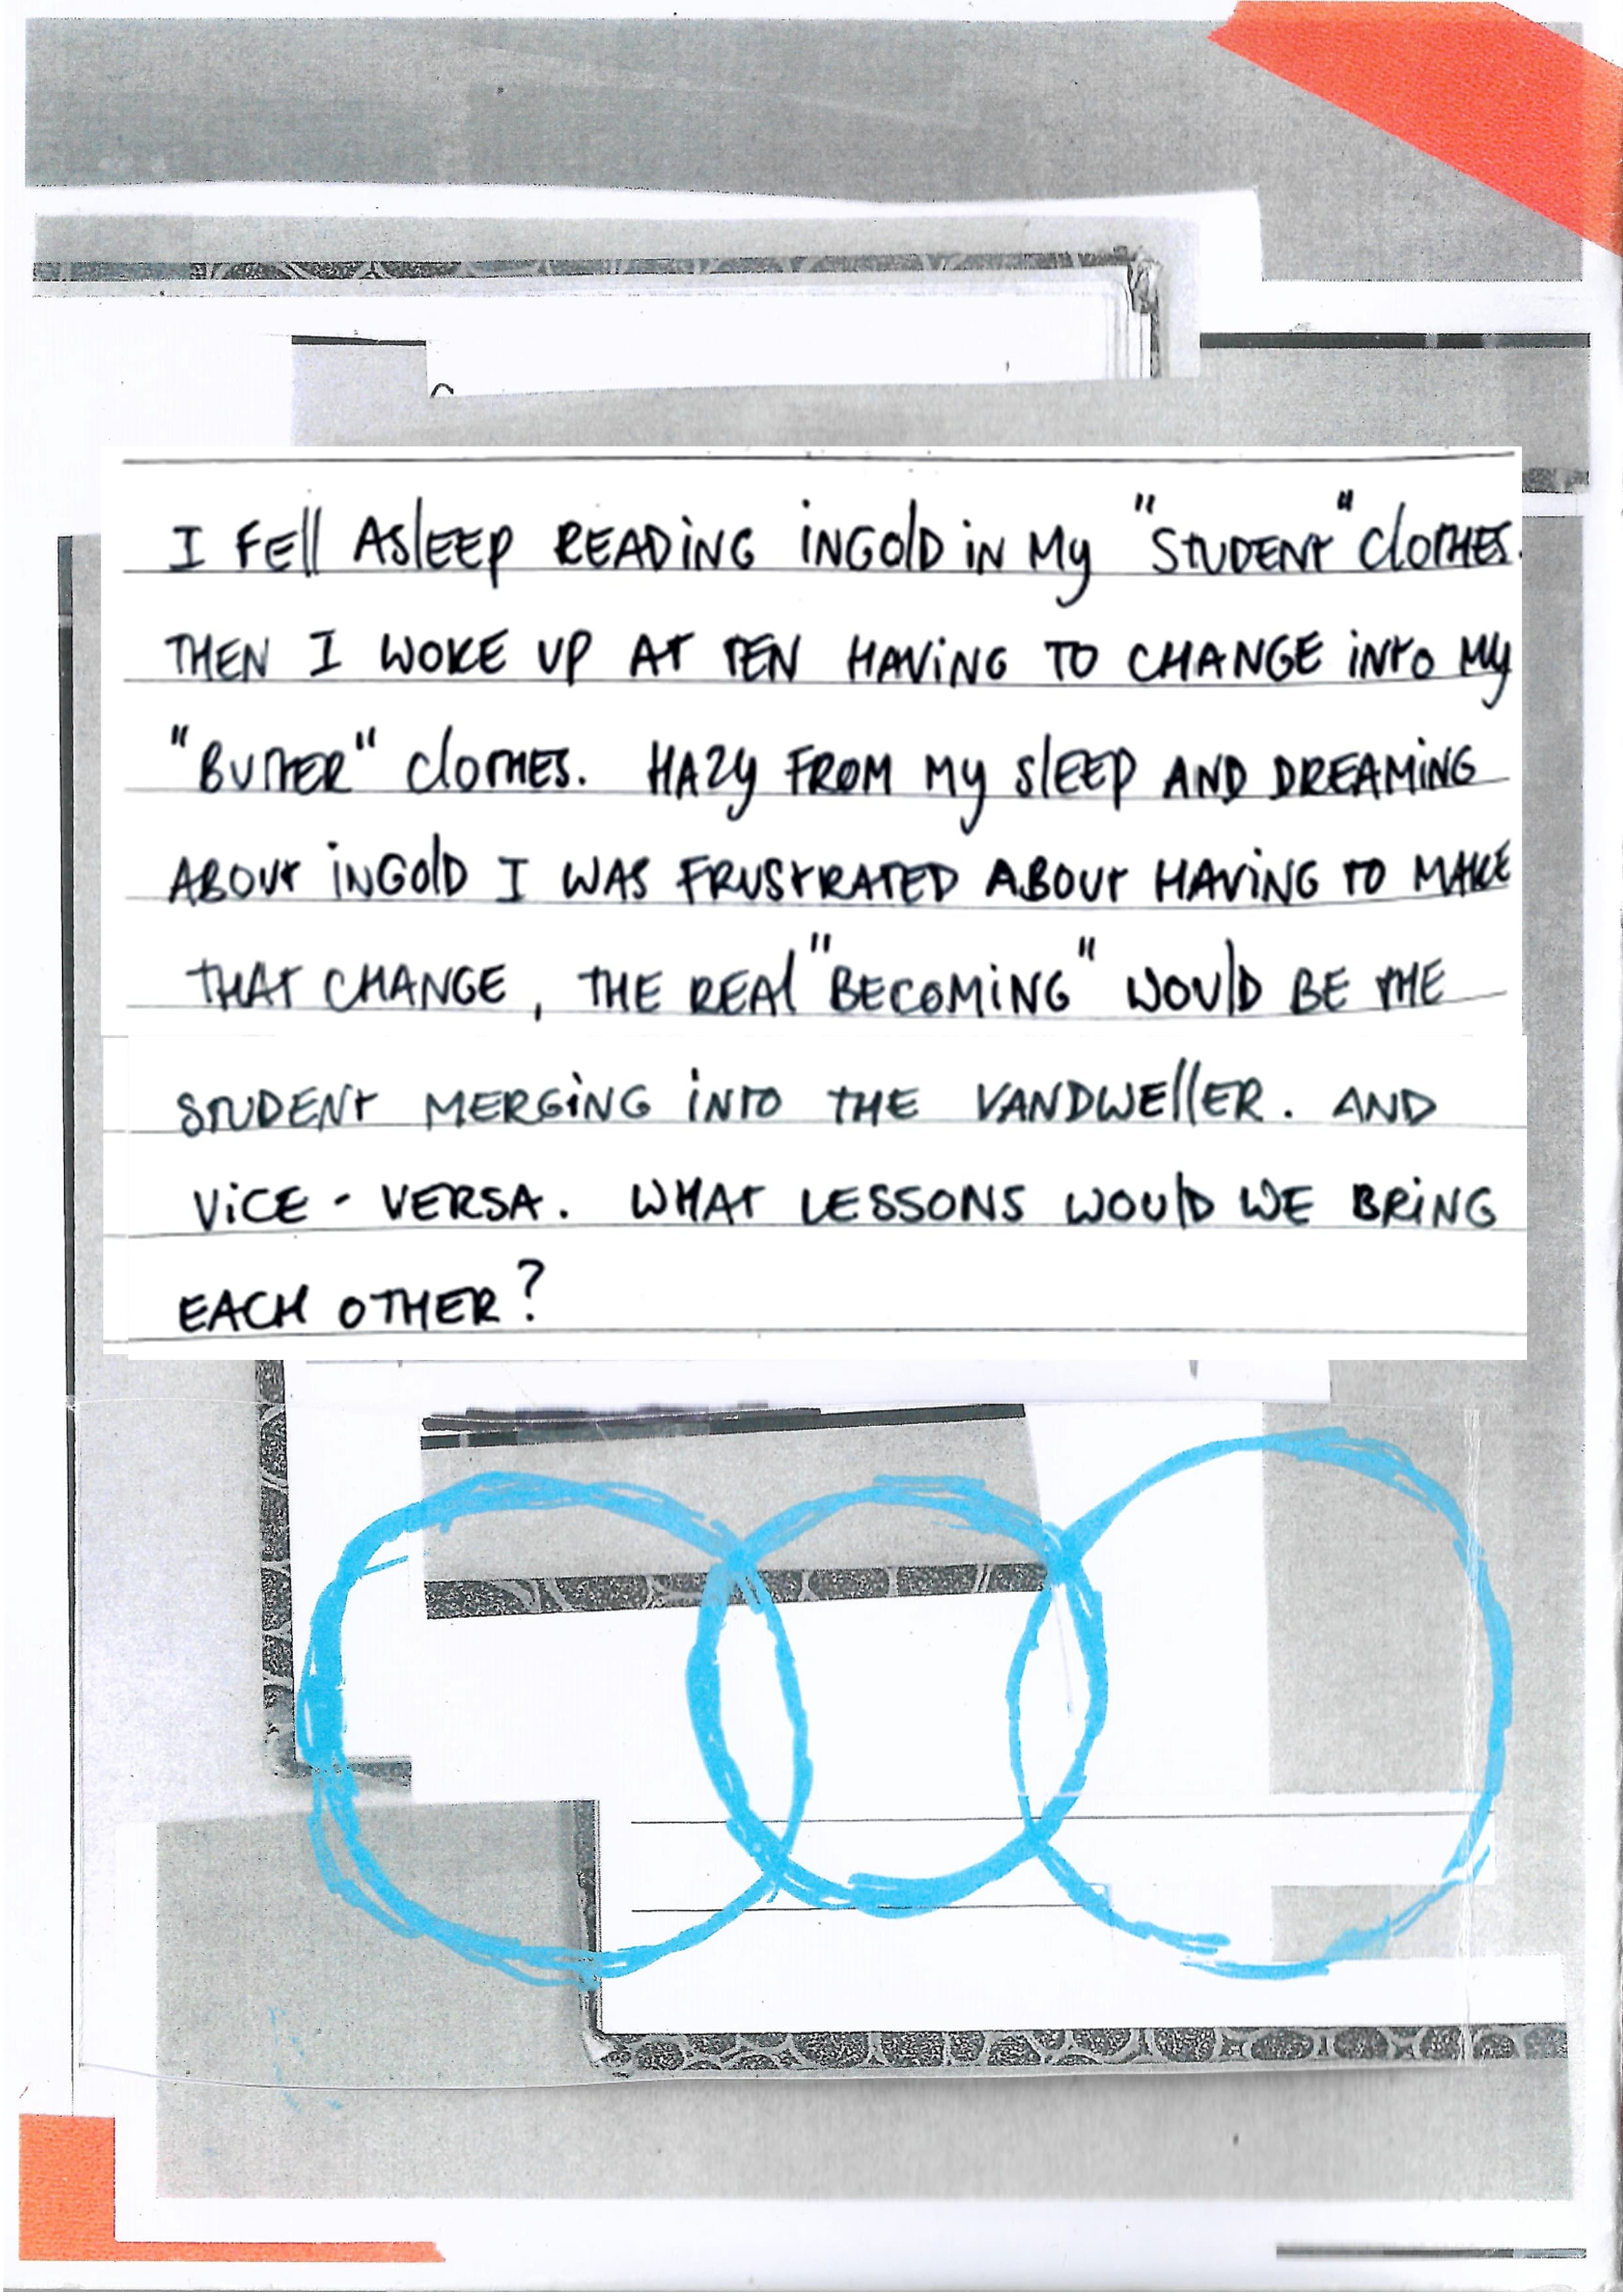 I FELL ASLEEP READING INGOLD IN MY "STUDENT" CLOTHES.
THEN I WOKE UP AT TEN HAVING TO CHANGE INTO MY
"BUTTER" CLOTHES. HAZY FROM MY SLEEP AND DREAMING
ABOUT INGOLD I WAS FRUSTRATED ABOUT HAVING TO MAKE
THAT CHANGE, THE REAL "BECOMING" WOULD BE THE
STUDENT MERGING INTO THE VANDWELLER. AND
VICE - VERSA. WHAT LESSONS WOULD WE BRING
EACH OTHER?